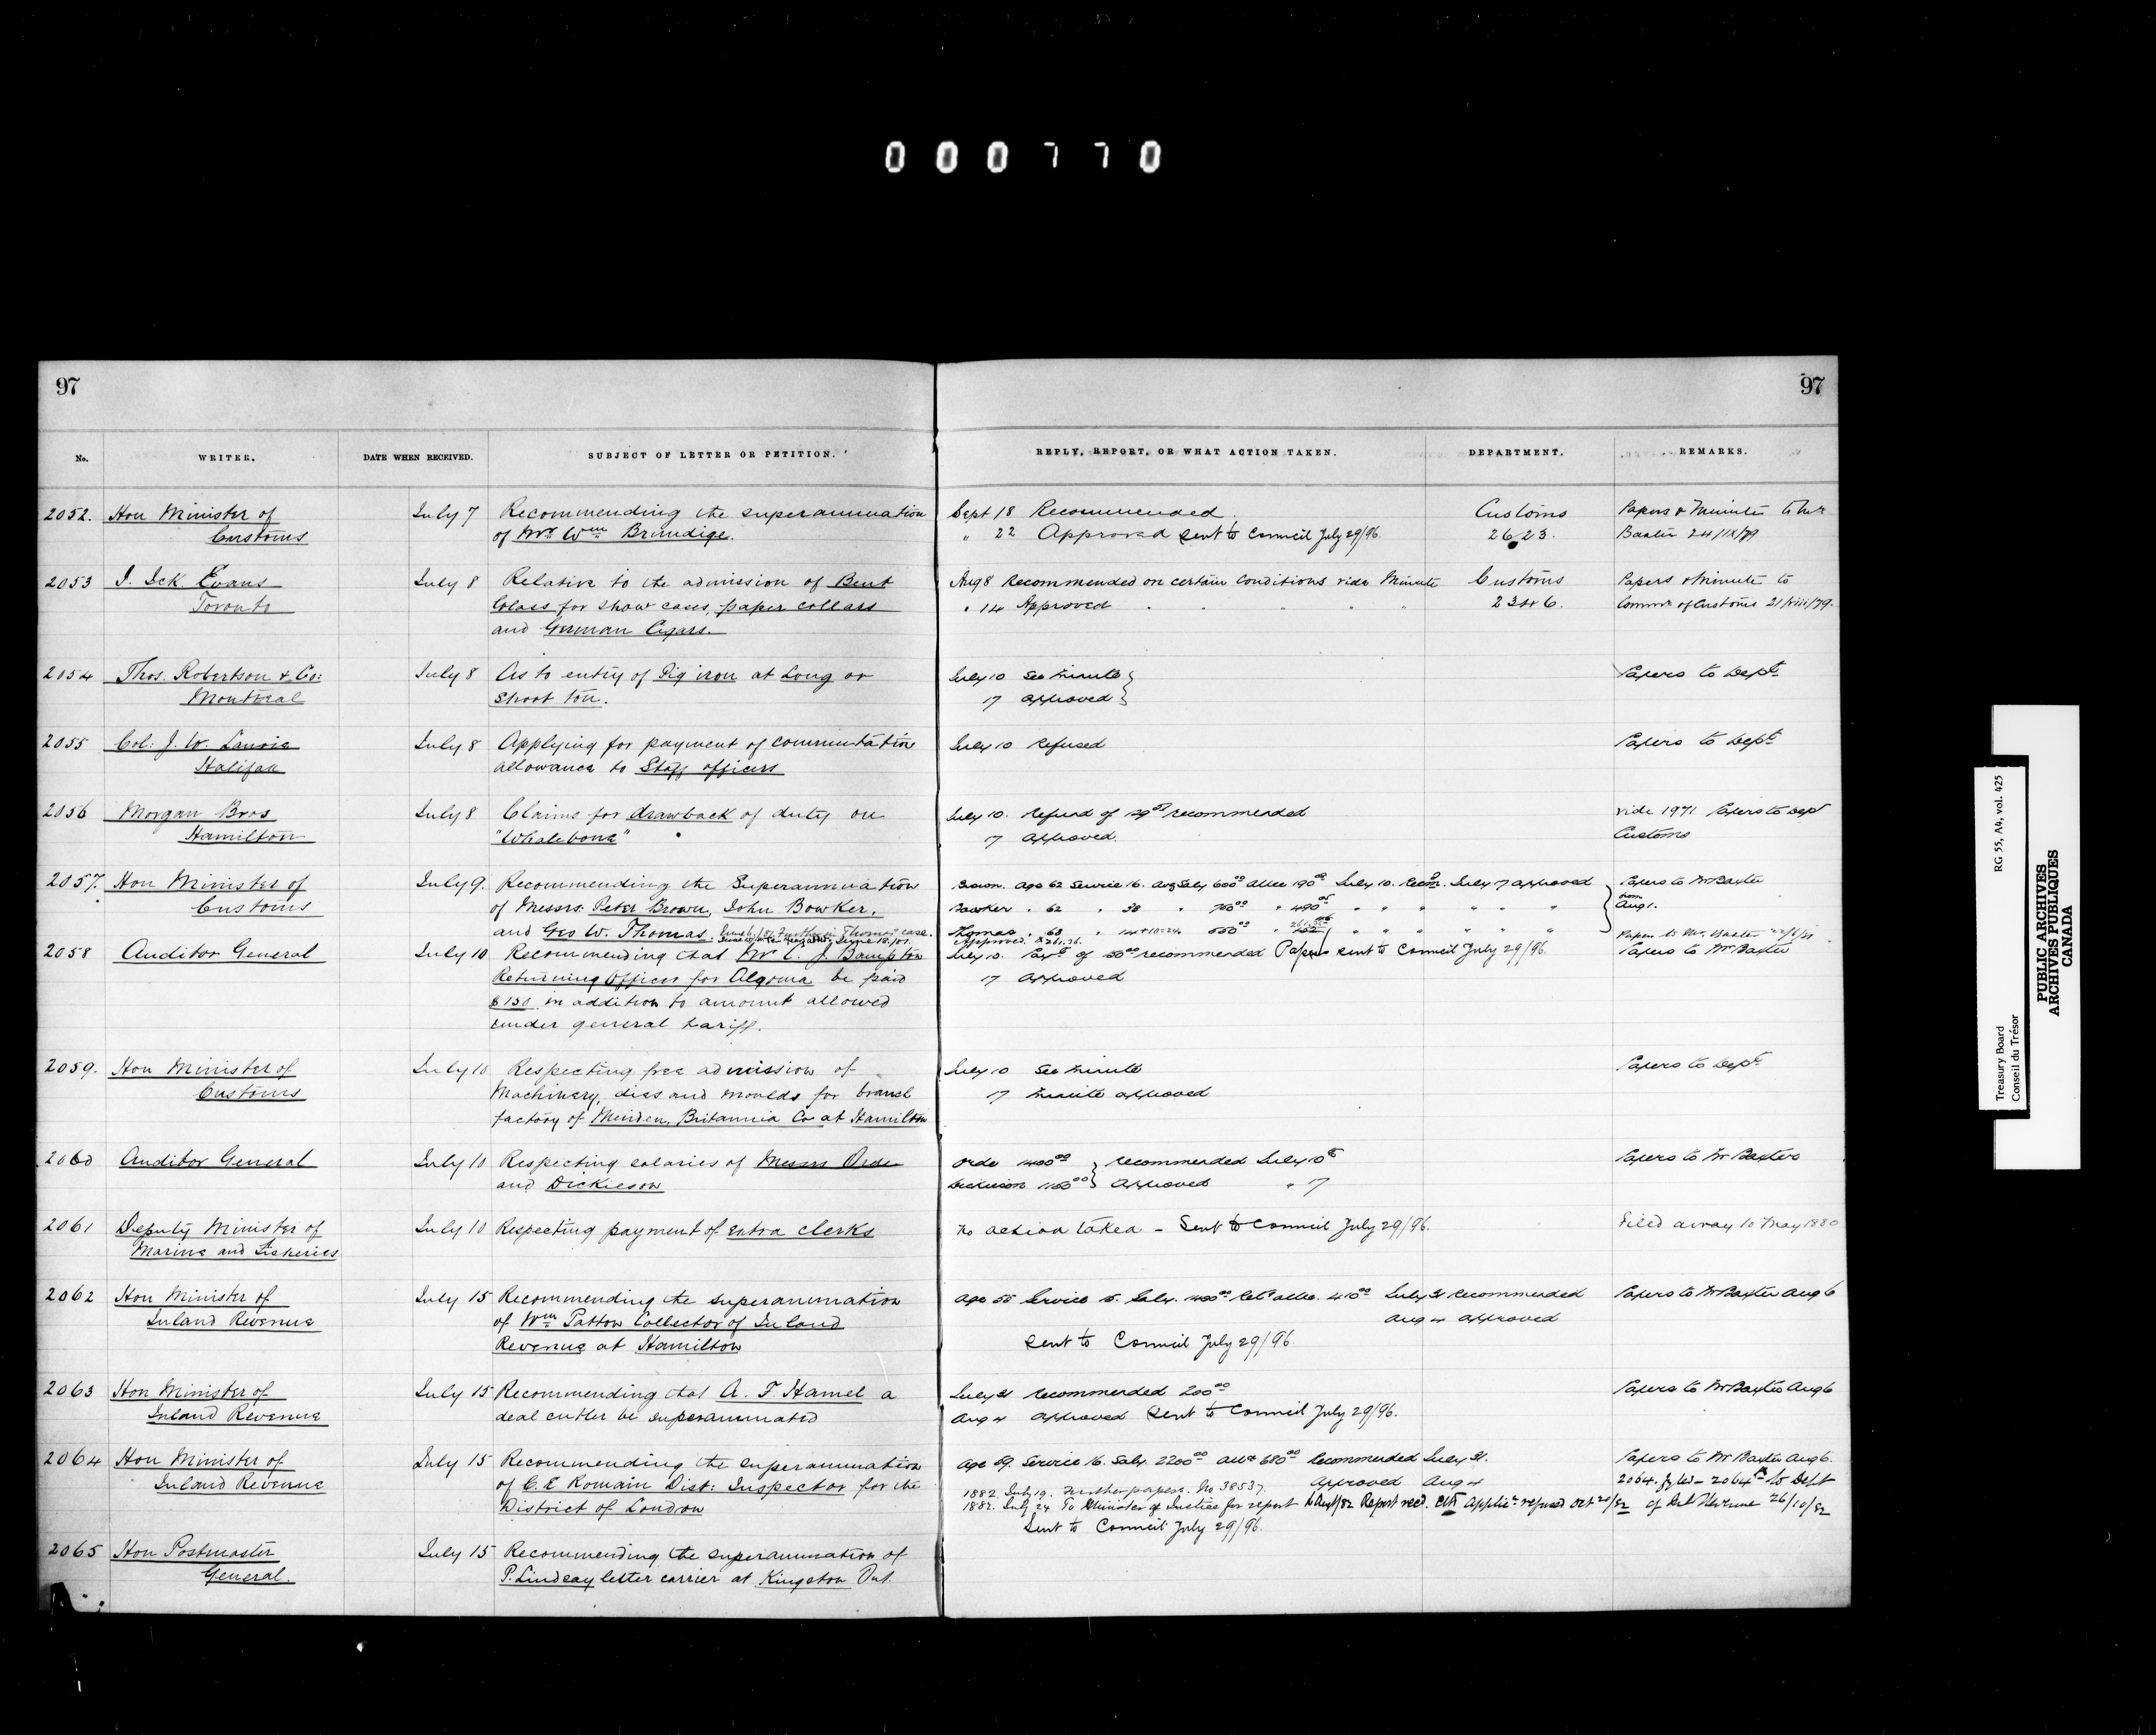 000770
97
97
No.
WRITER.
DATE WHEN RECEIVED.
SUBJECT OF LETTER OR PETITION.
REPLY, REPORT, OR WHAT ACTION TAKEN.
DEPARTMENT.
REMARKS.
2052. Hon Minister of July 7 Recommending the superannuation Sept 18 Recommended. Customs Papers & Minute to Mr
Customs of Mr. Wm Brundige. " 22 Approved Sent to Council July 29/96. 2623. Baxter 24/IX/79
2053 Evans July 8 Relative to the admission of Bent Aug 8 Recommended on certain conditions vide Minute Customs Papers & Minute to
Toronto Glass for show cases, paper collars " 14 Approved " " " " Commr of Customs 21/viii/79.
and German Cigars.
2054 Thos. Robertson & Co: July 8 As to entry of Pig iron at Long or July 10 See Minute Papers to Dept
Montreal Short ton. 17 Approved
2055 Col: J. W. Laurie July 8 Applying for payment of commutation July 10 Refused Papers to Dept
Halifax allowance to Staff officers
2056 Morgan Bros July 8 Claims for drawback of duty on July 10. Refund of recommended vide 1971 Papers to Dept
Hamilton "Whalebone" 17 Approved. Customs
2057. Hon Minister of July 9. Recommending the Superannuation Brown. Age 62 Service 16. Avg Saly 600 00 Allce 190 July 10. Recom. July 17 approved Papers to Mr Baxter
Customs of Messrs. Peter Brown, John Bowker, Bowker " 62 " 38 " " " " " " " " from Aug 1.
and Geo W. Thomas. Thomas case. Thomas " "
Approved. Papers to Mr. Baxter
2058 Auditor General July 10 Recommending that Mr C. J. Bampton July 10. Paymt of recommended Papers sent to Council July 29/96. Papers to Mr Baxter
Returning Officer for Algoma be paid 17 Approved
$150 in addition to amount allowed
under general tariff.
2059. Hon Minister of July 10 Respecting free admission of July 10 See Minute Papers to Dept
Customs Machinery, dies and moulds for branch 17 Minute approved
factory of Meriden, Britannia Co at Hamilton
2060 Auditor General July 10 Respecting salaries of Messrs Orde Orde 1400 00 recommended July 10th Papers to Mr Baxter
and Dickieson Dickieson Approved " 17
2061 Deputy Minister of July 10 Respecting payment of extra clerks No action taken - Sent to Council July 29/96. Filed away 10 May 1880
Marine and Fisheries
2062 Hon Minister of July 15 Recommending the superannuation Age Service Saly. July 31 recommended Papers to Mr Baxter Aug 6
Inland Revenue of Wm Patton Collector of Inland Aug 4 approved
Revenue at Hamilton Sent to Council July 29/96.
2063 Hon Minister of July 15 Recommending that A. F Hamel a July 31 recommended 200 00 Papers to Mr Baxter Aug 6
Inland Revenue deal culler be superannuated Aug 4 approved Sent to Council July 29/96.
2064 Hon Minister of July 15 Recommending the superannuation Age 69. Service 16. Saly. 2200 00 allce 680 00 Recommended July 31. Papers to Mr Baxter Aug 6.
Inland Revenue of C. E Romain Dist: Inspector for the Approved Aug 4
1882. July 19. Further papers. No 38537.
District of London 1882. July 24 To Minister of Justice for report Report recd. refused Oct 20/82 of Inl Revenue 26/10/82
Sent to Council July 29/96.
2065 Hon Postmaster July 15 Recommending the superannuation of
General. P. Lindsay letter carrier at Kingston Ont.
RG 55, A4, vol. 425
Treasury Board
Conseil du Trésor
PUBLIC ARCHIVES
ARCHIVES PUBLIQUES
CANADA